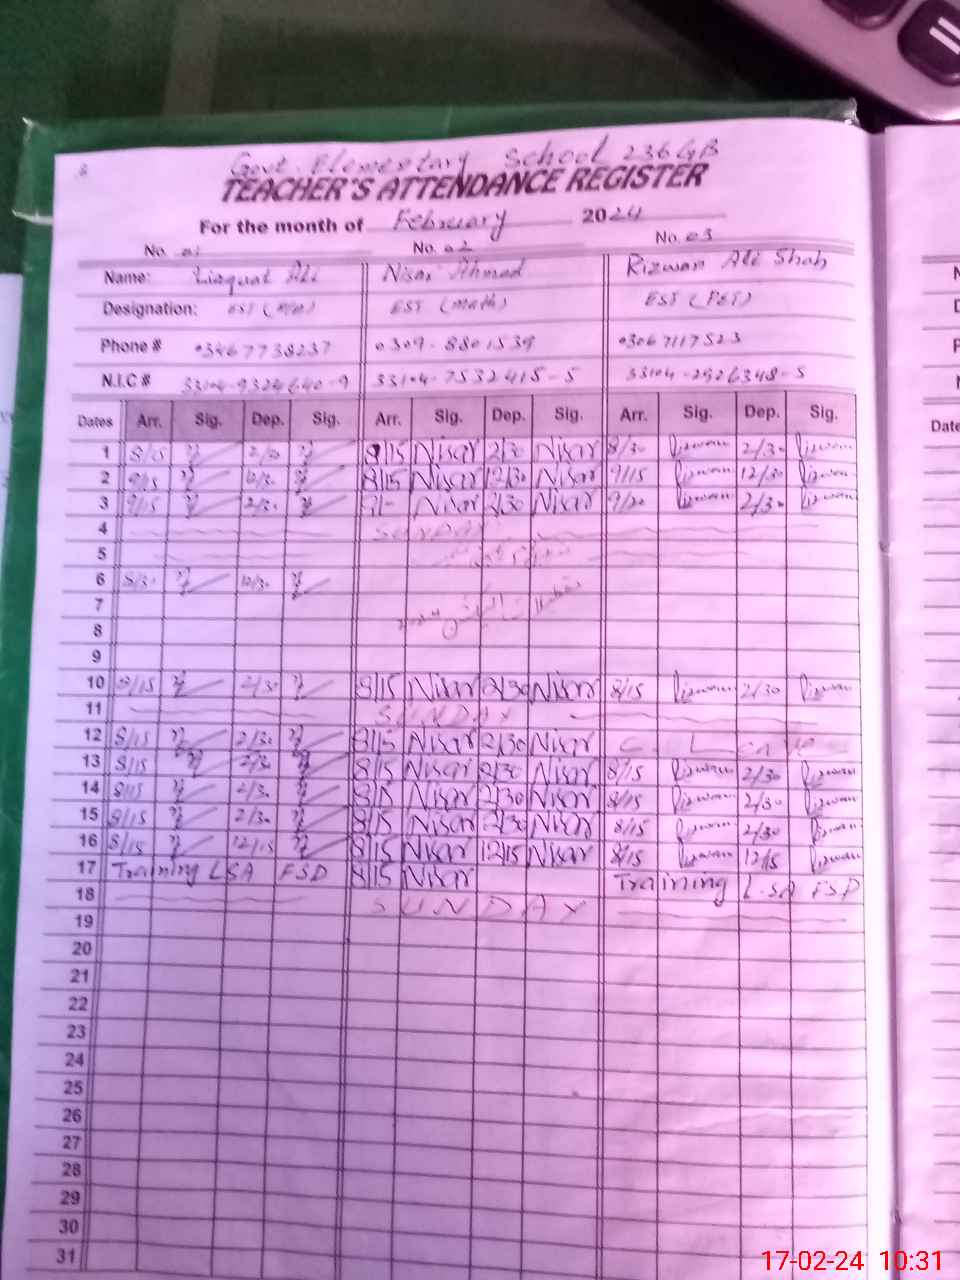 Govt. Elementary School 236 GB
TEACHER'S ATTENDANCE REGISTER
For the month of February 2024
No. 01 No. 02 No. 03
Name: Liaquat Ali Nisar Ahmad Rizwan Ali Shah
Designation: EST EST (Math) EST (PET)
Phone # 03467738237 0309-8801539 03067117523
N.I.C # 33104-9324640-9 33104-7532415-5 33104-2926348-5
Dates Arr. Sig. Dep. Sig. Arr. Sig. Dep. Sig. Arr. Sig. Dep. Sig.
1 8/15 2/30 8/15 Nisar 2/30 Nisar 8/30 Rizwan 2/30 Rizwan
2 9/15 12/30 8/15 Nisar 12/30 Nisar 9/15 Rizwan 12/30 Rizwan
3 9/15 2/30 9/- Nisar 2/30 Nisar 9/20 Rizwan 2/30 Rizwan
4 SUNDAY
5
6 8/30 12/30
7 تعطیلات الیکشن 2024
8
9
10 8/15 2/30 8/15 Nisar 2/30 Nisar 8/15 Rizwan 2/30 Rizwan
11 SUNDAY
12 8/15 2/30 8/15 Nisar 2/30 Nisar C. Leave
13 8/15 2/30 8/15 Nisar 2/30 Nisar 8/15 Rizwan 2/30 Rizwan
14 8/15 2/30 8/15 Nisar 2/30 Nisar 8/15 Rizwan 2/30 Rizwan
15 8/15 2/30 8/15 Nisar 2/30 Nisar 8/15 Rizwan 2/30 Rizwan
16 8/15 12/15 8/15 Nisar 12/15 Nisar 8/15 Rizwan 12/15 Rizwan
17 Training LSA FSD 8/15 Nisar Training L.SA FSD
18 SUNDAY
19
20
21
22
23
24
25
26
27
28
29
30
31
Date
17-02-24 10:31